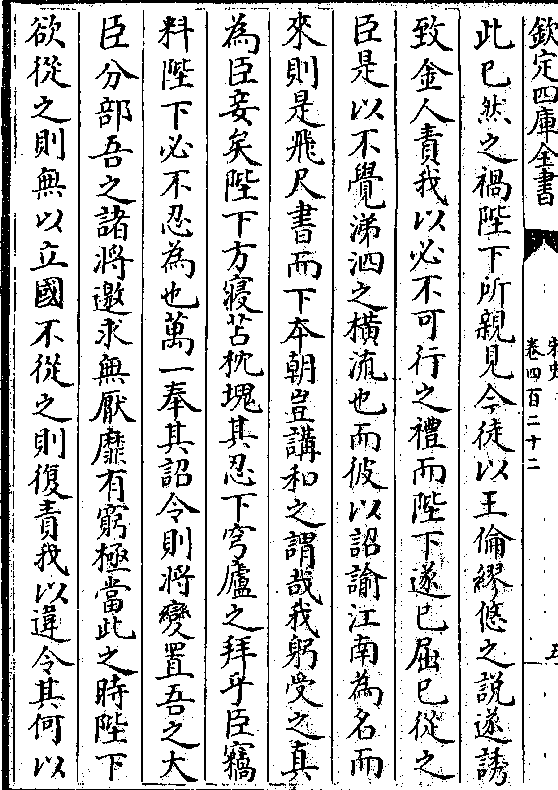 欽定四庫全書
宋史
卷四百二十二
五
此已然之禍陛下所親見今徒以王倫繆悠之說遂誘
致金人責我以必不可行之禮而陛下遂已屈己從之
臣是以不覺涕泗之横流也而彼以詔諭江南為名而
來則是飛尺書而下本朝豈講和之謂哉我躬受之真
為臣妾矣陛下方寢苫枕塊其忍下穹廬之拜乎臣竊
料陛下必不忍為也萬一奉其詔令則將變置吾之大
臣分部吾之諸將邀求無厭靡有窮極當此之時陛下
欲從之則無以立國不從之則復責我以違令其何以